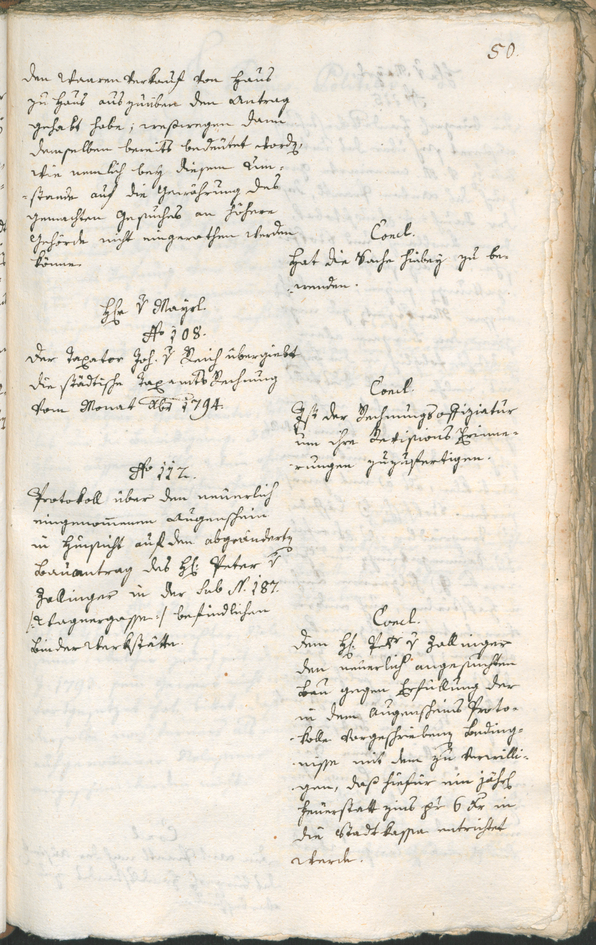 50.
den Waaren Verkauf von Haus
zu Haus auszuüben den Antrag
gehabt habe; weßwegen dann
demselben bereits bedeutet word,
wie nemlich bey diesem Um-
stande auf die Gewährung des
gemachten Gesuches an höhere
Behörde nicht eingerathen werden
könne.
Concl.
Hat die Sache hiebey zu be-
wenden.
Hr. v Mayrl.
No 108.
Der Taxator Joh. v Reich übergiebt
die städtische Taxamts Rechnung
vom Monat 1794.
Concl.
Ist der Rechnungsoffiziatur
um ihre Revisions Erinne-
rungen zuzufertigen.
No 112.
Protokoll über den neuerlich
eingenommenen Augenschein
in Hinsicht auf den abgeänderten
Bauantrag des H. Peter v
Zallinger in der sub N. 187.
/: Wagnergasse :/ befindlichen
Binder Werkstätte.
Concl.
Dem H. Peter v Zallinger
den neuerlich angesuchten
Bau gegen Erfüllung der
in dem Augenscheins Proto-
kolle vorgeschriebenen Beding-
nisse mit dem zu verwilli-
gen, daß hiefür ein jährl.
Feuerstatt zins pr 6 Kr in
die Stadtkassa entrichtet
werde.